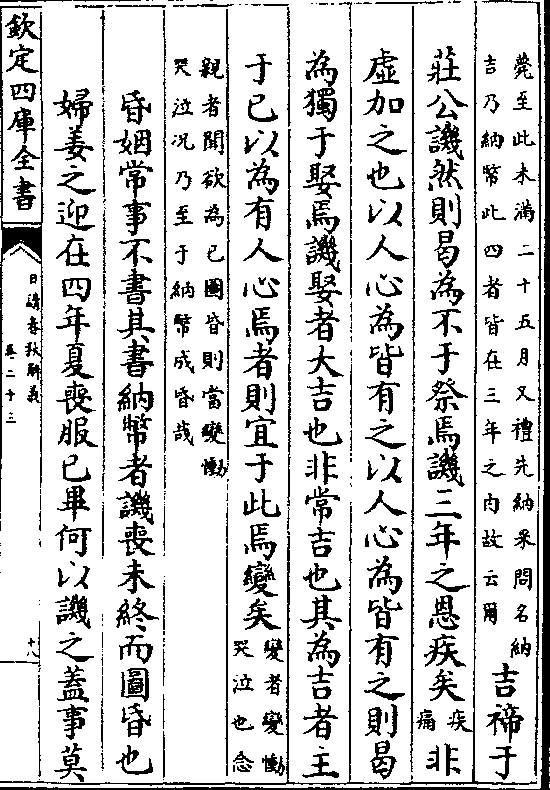 薨至此未滿二十五月又禮先納采問名納
吉乃納幣此四者皆在三年之内故云爾
吉禘于
莊公譏然則曷為不于祭焉譏三年之恩疾矣
疾
痛
非
虛加之也以人心為皆有之以人心為皆有之則曷
為獨于娶焉譏娶者大吉也非常吉也其為吉者主
于已以為有人心焉者則宜于此焉變矣
變者變慟
哭泣也念
親者聞欲為已圖昏則當變慟
哭泣况乃至于納幣成昏哉
昏姻常事不書其書納幣者譏喪未終而圖昏也
婦姜之迎在四年夏喪服已畢何以譏之蓋事莫
欽定四庫全書
日講春秋解義
卷二十三
十八